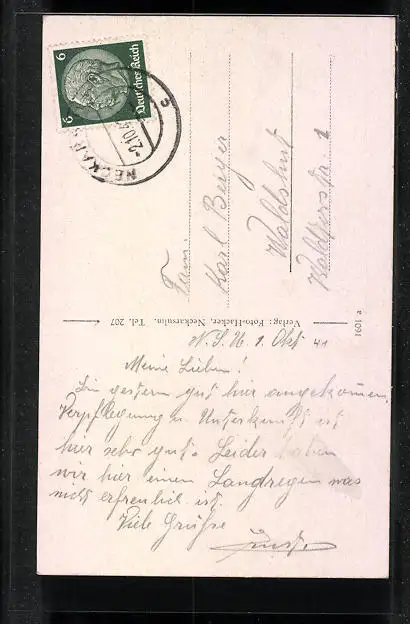 6 Deutsches Reich 6
NECKARS
-2.10.4
Fam.
Karl Beiger
Waldshut
Verlag: Foto-Hacker, Neckarsulm. Tel. 207
a 1091
N.S.U. 1. Okt 41
Meine Lieben!
Bin gestern gut hier angekommen,
Verpflegung u. Unterkunft ist
hier sehr gut. Leider haben
wir hier einen Landregen was
nicht erfreulich ist.
Viele Grüße